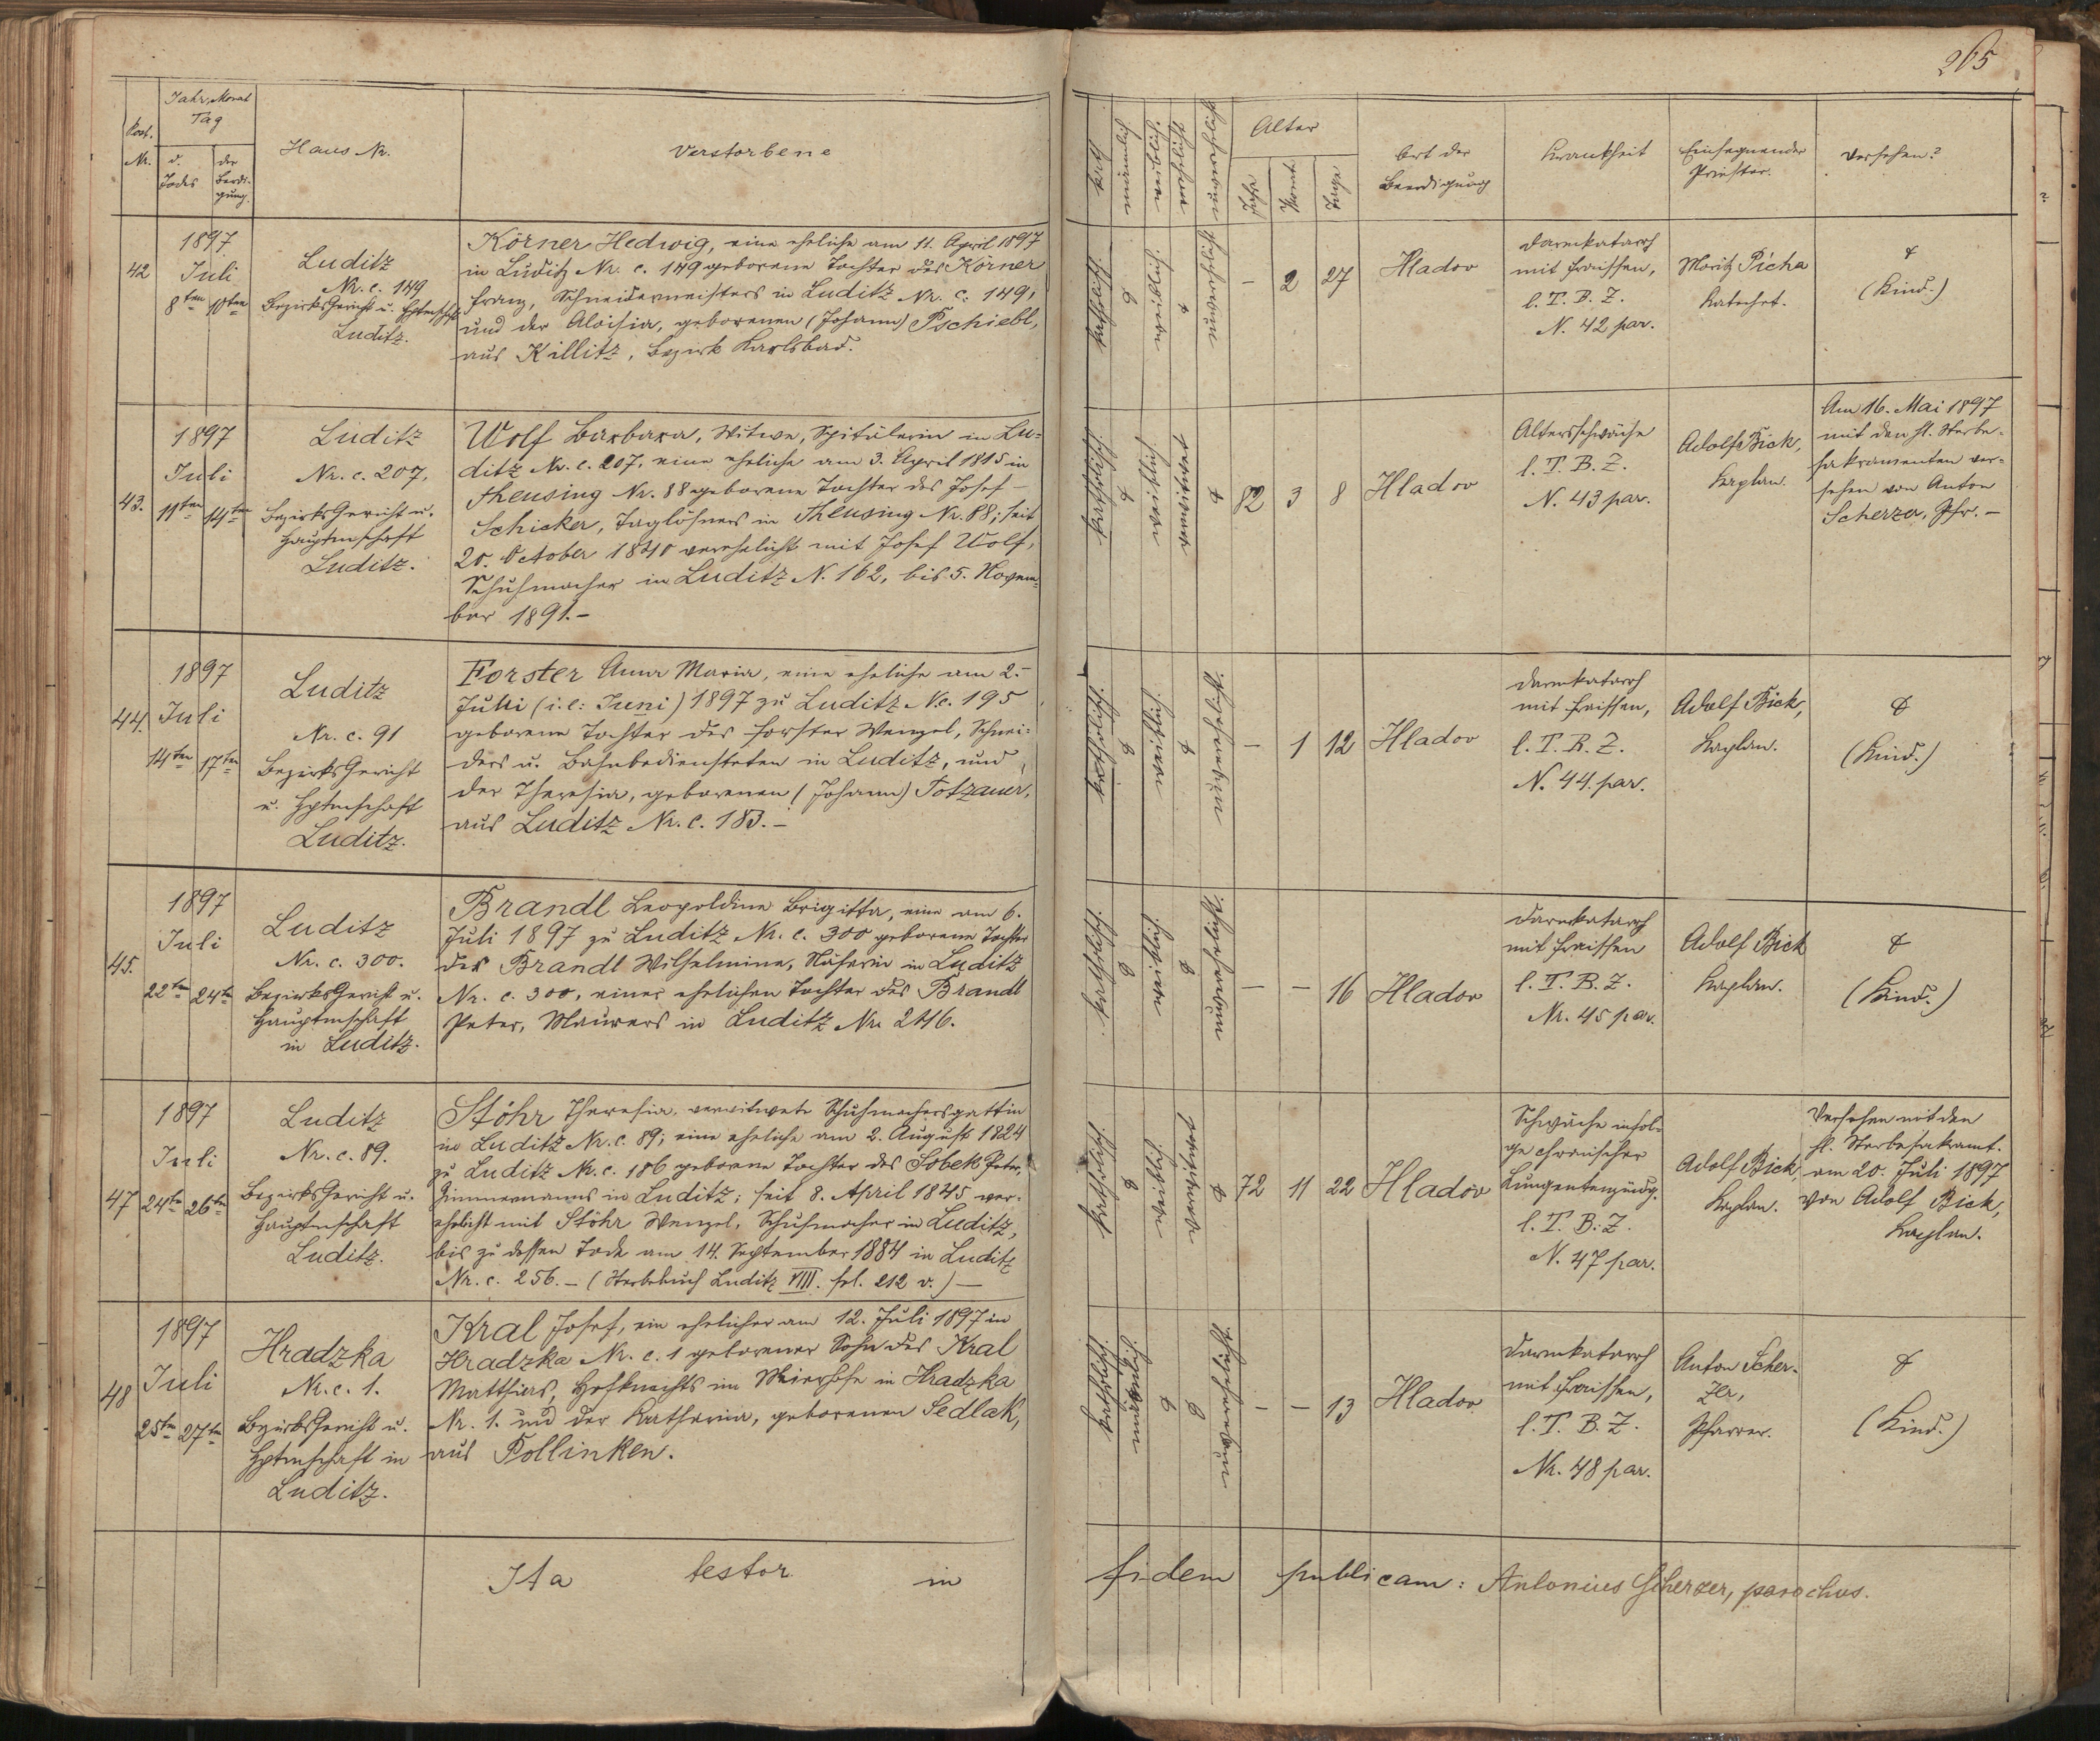 265
Post.
Nr.
Jahr, Monat
Tag
d.
Todes
der
Beerdi-
gung.
Haus Nr.
Verstorbene
42
1897
Juli
8ten 10ten
Luditz
Nr. c. 149
Bezirksgericht u. Hptmschft
Luditz.
Körner Hedwig, eine eheliche am 11. April 1897
in Luditz Nr. c. 149 geborene Tochter des Körner
Franz, Schneidermeisters in Luditz Nr. c. 149,
und der Aloisia, geborenen (Johann) Pschiebl,
aus Killitz, Bezirk Karlsbad.
43.
1897
Juli
11ten 14ten
Luditz
Nr. c. 207,
Bezirksgericht u.
Hauptmschaft
Luditz.
Wolf Barbara, Witwe, Spitälerin in Lu-
ditz Nr. c. 207, eine eheliche am 3. April 1815 in
Theusing Nr. 88 geborene Tochter des Josef
Schicker, Taglöhners in Theusing Nr. 88; seit
20. October 1840 verehelicht mit Josef Wolf,
Schuhmacher in Luditz N. 162, bis 5. Novem-
ber 1891.-
44.
1897
Juli
14ten 17ten
Luditz
Nr. c. 91
Bezirksgericht
u. Hptmschaft
Luditz.
Forster Anna Maria, eine eheliche am 2.
Julii (i.e: Juni) 1897 zu Luditz N.c. 195
geborene Tochter des Forster Wenzel, Schnei-
ders u. Bahnbediensteten in Luditz, und
der Theresia, geborenen (Johann) Totzauer,
aus Luditz Nr. c. 183.-
45.
1897
Juli
22ten 24ten
Luditz
Nr. c. 300.
Bezirksgericht u.
Hauptmschaft
in Luditz.
Brandl Leopoldine Brigitta, eine am 6.
Juli 1897 zu Luditz Nr. c. 300 geborene Tochter
der Brandl Wilhelmine, Näherin in Luditz
Nr. c. 300, einer ehelichen Tochter des Brandl
Peter, Maurers in Luditz Nr. 246.
47
1897
Juli
24ten 26ten
Luditz
Nr. c. 89.
Bezirksgericht u.
Hauptmschaft
Luditz.
Stöhr Theresia, verwitwete Schuhmachersgattin
in Luditz Nr. c. 89; eine eheliche am 2. August 1824
zu Luditz Nr. c. 186 geborne Tochter des Sobek Peter,
Zimmermanns in Luditz; seit 8. April 1845 ver-
ehelicht mit Stöhr Wenzel, Schuhmacher in Luditz,
bis zu dessen Tode am 14. September 1884 in Luditz
Nr. c. 256. - (Sterbebuch Luditz VIII. fol. 212 v.) -
48
1897
Juli
25ten 27ten
Hradzka
Nr. c. 1.
Bezirksgericht u.
Hptmschaft in
Luditz.
Kral Josef, ein ehelicher am 12. Juli 1897 in
Hradzka Nr. c. 1 geborener Sohn des Kral
Matthias, Hofknechts im Meierhofe in Hradzka
Nr. 1. und der Katharina, geborenen Sedlak,
aus Pollinken.
Ita testor in
kath
männlich
weiblich.
verehelicht
unverehelicht
Alter
Jahr
Monat
Tage
Ort der
Beerdigung
Krankheit
Einsegnender
Priester.
Versehen?
katholisch.
weiblich.
unverehelicht
- 2 27
Hladov
Darmkatarrh
mit Fraissen,
l. T. B. Z.
N. 42 par.
Moritz Picha
Katechet.
(Kind.)
katholisch.
weiblich
verwitwet
82 3 8
Hladov
Altersschwäche
l. T. B. Z.
N. 43 par.
Adolf Bick,
Kaplan.
Am 16. Mai 1897
mit den hl. Sterbe-
sakramenten ver-
sehen von Anton
Scherzer, Pfr. -
katholisch.
weiblich.
unverehelicht.
- 1 12
Hladov
Darmkatarrh
mit Fraissen,
l. T. B. Z.
N. 44. par.
Adolf Bick,
Kaplan.
(Kind.)
katholisch.
weiblich.
unverehelicht.
- - 16
Hladov
Darmkatarrh
mit Fraissen
l. T. B. Z.
Nr. 45 par.
Adolf Bick
Kaplan.
(Kind.)
katholisch.
weiblich.
verwitwet
72 11 22
Hladov
Schwäche infol-
ge chronischer
Lungenentzündg.
l. T. B. Z.
N. 47 par.
Adolf Bick,
Kaplan.
Versehen mit den
hl. Sterbesakramt.
am 20. Juli 1897
von Adolf Bick,
Kaplan.
katholisch.
männlich.
unverehelicht.
- - 13
Hladov
Darmkatarrh
mit Fraissen,
l. T. B. Z.
Nr. 48 par.
Anton Scher-
zer,
Pfarrer.
(Kind.)
fidem publicam: Antonius Scherzer, parochus.